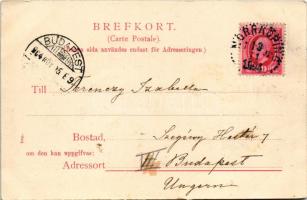 BREFKORT.
(Carte Postale).
sida användes endast för Adresseringen.)
BUDAPEST
NORRKÖPING
Till Ferenczy Izabella
Bostad,
om den kan uppgifvas:
Adressort Budapest
Ungern